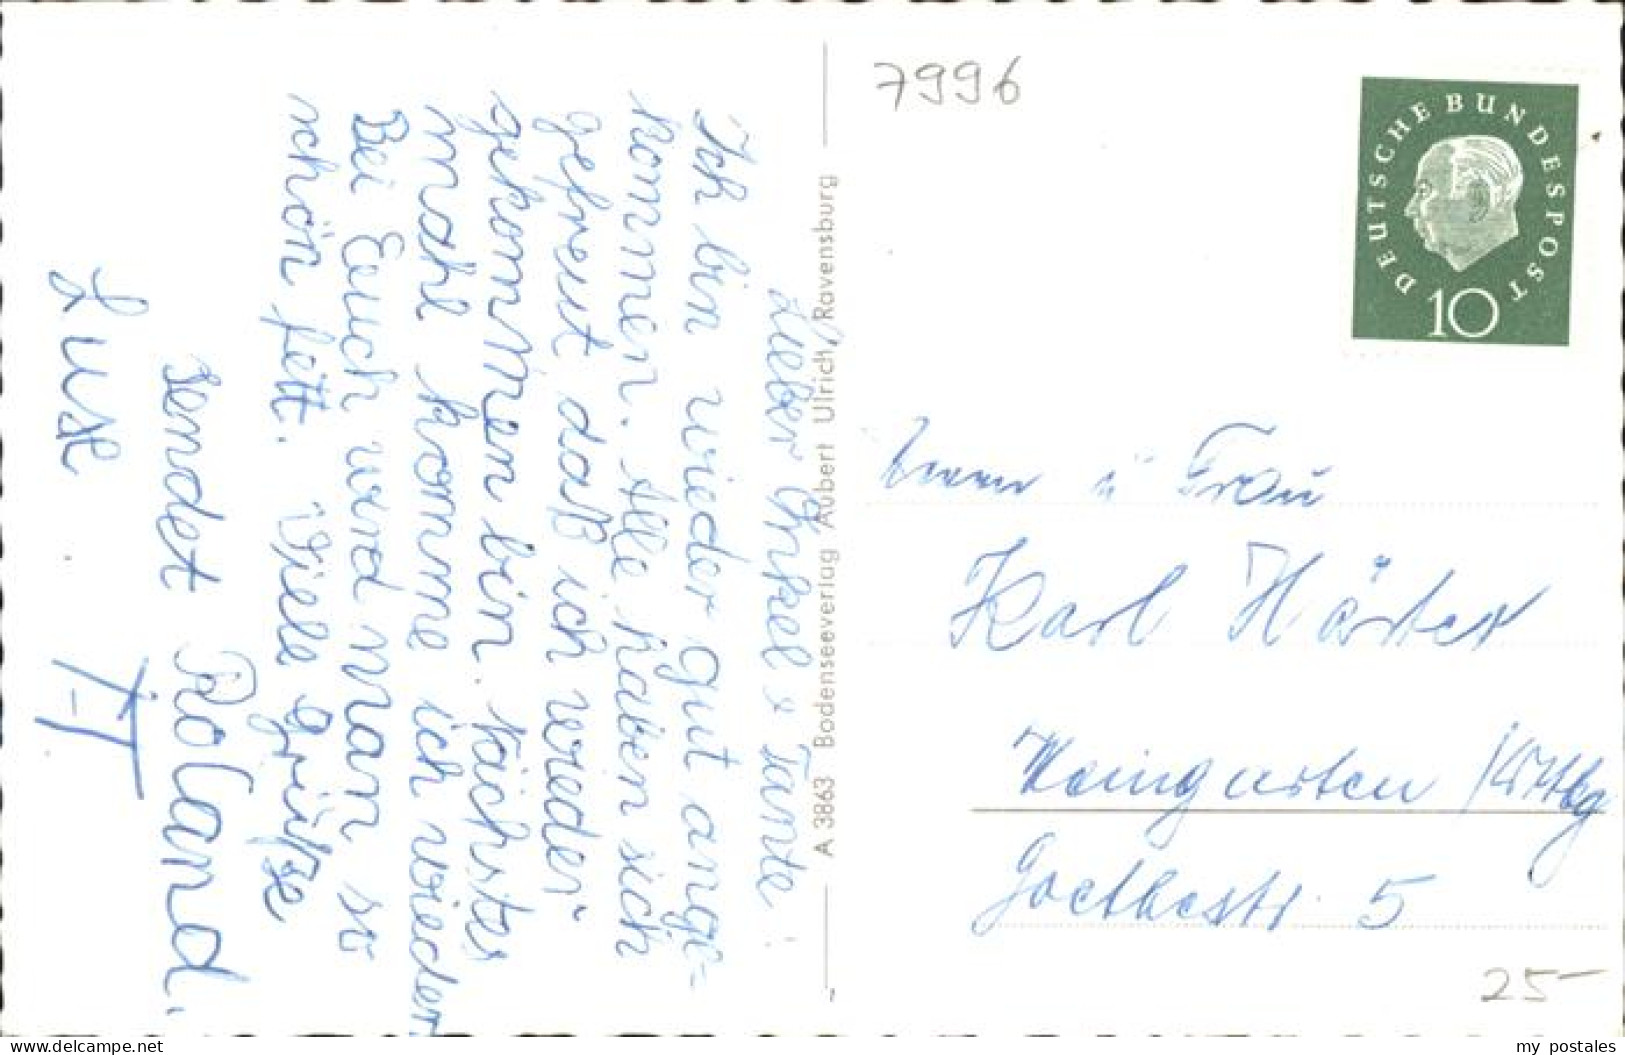 Lieber Onkel & Tante!
Ich bin wieder gut ange-
kommen. Alle haben sich
gefreut daß ich wieder
gekommen bin. Nächstes
mahl komme ich wieder
Bei Euch wird man so
schön fett. Viele Grüße
sendet Roland.
A 3863 Bodenseeverlag Aubert Ulrich, Ravensburg
7996
DEUTSCHE BUNDESPOST
10
u Frau
Karl Härter
Weingarten /Wttbg
Goethestr. 5
25-
www.delcampe.net
my_postales